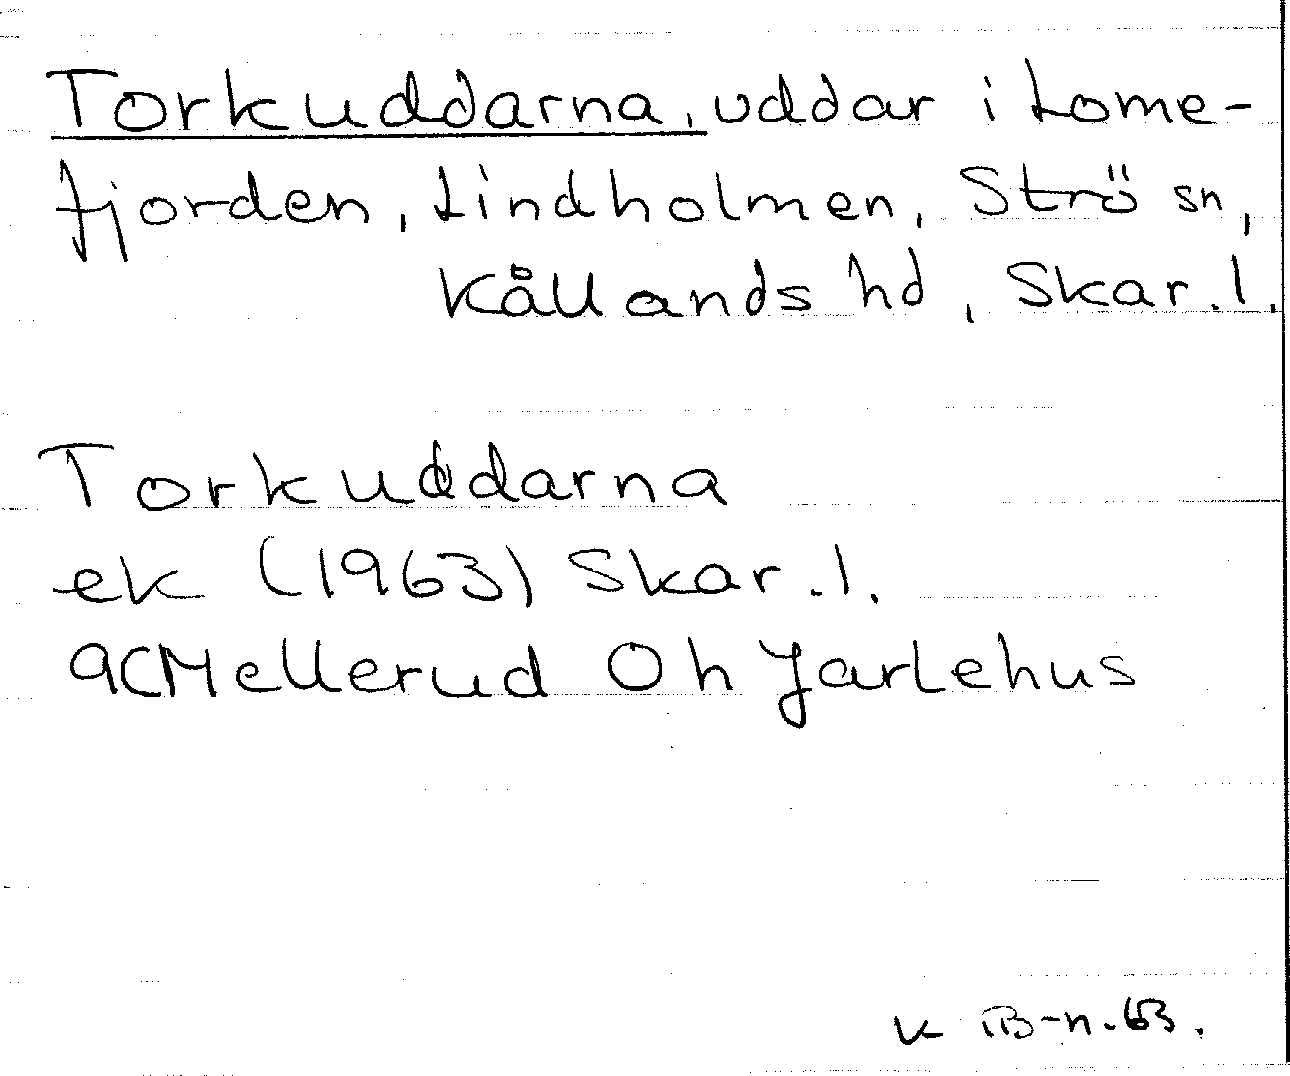 Torkuddarna, uddar i Lome-
fjorden, Lindholmen, Strö sn,
Kållands hd, Skar. l.
Torkuddarna
ek (1963) Skar. l.
9C Mellerud Oh Jarlehus
K IB-n. 63.